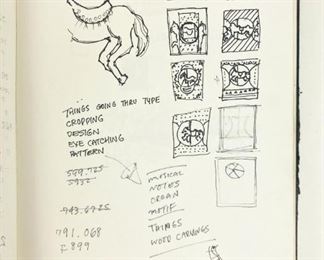 THINGS GOING THRU TYPE
CROPPING
DESIGN
EYE CATCHING
PATTERN
599.725
743.6725
791.068
F899
MUSICAL
NOTES
ORGAN
MOTIF
THINGS
WOOD CARVINGS